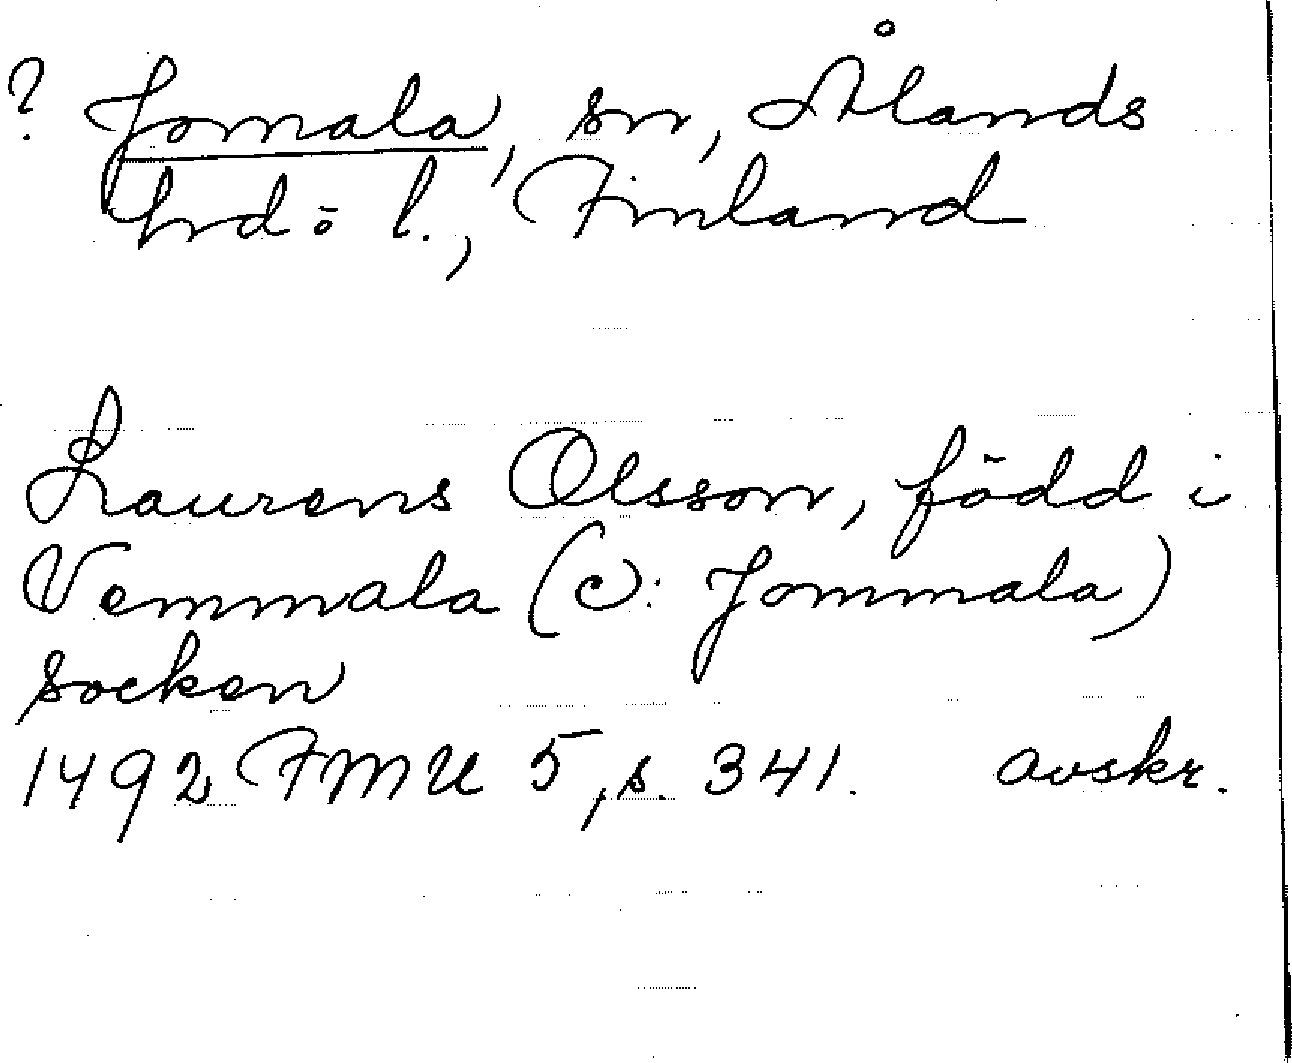 ? Jomala, sn, Ålands
hrd o l., Finland
Laurens Olsson, född i
Vemmala (ɔ: Jommala)
socken
1492 FMU 5, s. 341. avskr.